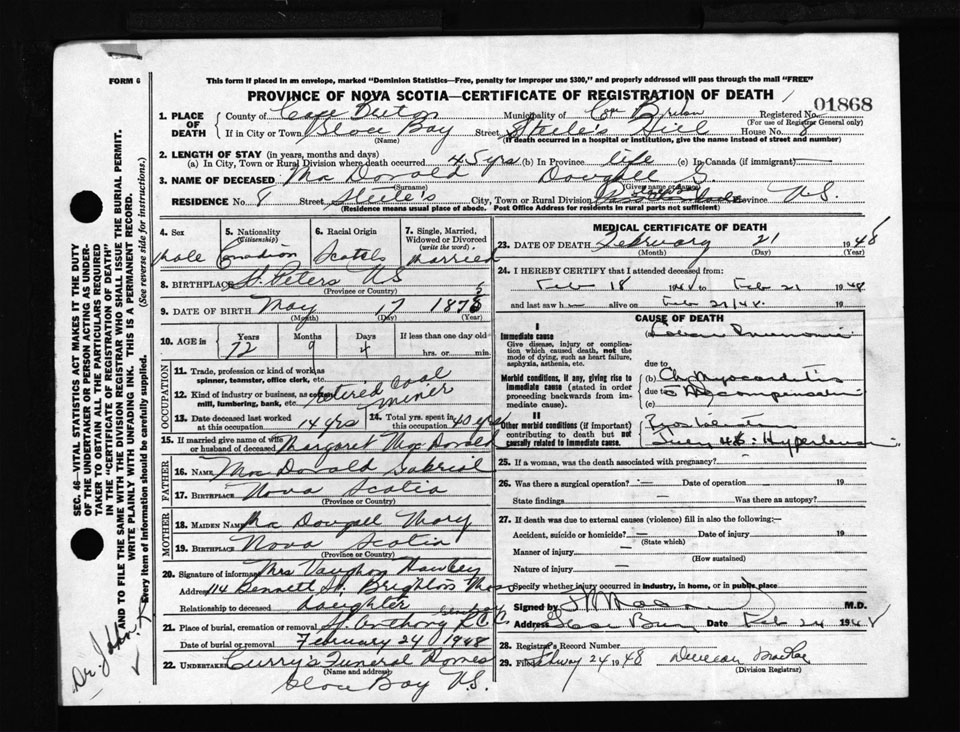 FORM 6
This form if placed in an envelope, marked "Dominion Statistics—Free, penalty for improper use $300," and properly addressed will pass through the mail "FREE"
PROVINCE OF NOVA SCOTIA—CERTIFICATE OF REGISTRATION OF DEATH
01868
1. PLACE OF DEATH
County of Cape Breton Municipality of Breton Registered No.
(For use of Registrar General only)
If in City or Town Glace Bay Street Steele's Hill House No. 8
(Name) (If death occurred in a hospital or institution, give the name instead of street and number)
2. LENGTH OF STAY (in years, months and days)
(a) In City, Town or Rural Division where death occurred 45 yrs (b) In Province life (c) In Canada (if immigrant) —
3. NAME OF DECEASED Mac Donald Dougall G.
(Surname) (Given name or names)
RESIDENCE No. 8 Street Steele's City, Town or Rural Division Province N.S.
(Residence means usual place of abode. Post Office Address for residents in rural parts not sufficient)
4. Sex Male
5. Nationality (Citizenship) Canadian
6. Racial Origin Scotch
7. Single, Married, Widowed or Divorced (write the word) Married
8. BIRTHPLACE St. Peters N.S.
(Province or Country)
9. DATE OF BIRTH May 7 187
(Month) (Day) (Year)
10. AGE in Years 72 Months 9 Days 4 If less than one day old hrs. or min.
OCCUPATION
11. Trade, profession or kind of work as spinner, teamster, office clerk, etc.
12. Kind of industry or business, as cotton mill, lumbering, bank, etc. retired Coal Miner
13. Date deceased last worked at this occupation 14 yrs
14. Total yrs. spent in this occupation 40 yrs
15. If married give name of wife or husband of deceased Margaret Mac Donald
FATHER
16. NAME Mac Donald Gabriel
17. BIRTHPLACE Nova Scotia
(Province or Country)
MOTHER
18. MAIDEN NAME Mac Dougall Mary
19. BIRTHPLACE Nova Scotia
(Province or Country)
20. Signature of informant Mrs Vaughan Hawley
Address 114 Bennett St. Brighton Mass
Relationship to deceased daughter
21. Place of burial, cremation or removal St. Anthony R.C. Cemetery C.B.
Date of burial or removal February 24 1948
22. UNDERTAKER Curry's Funeral Homes
(Name and address)
Glace Bay N.S.
MEDICAL CERTIFICATE OF DEATH
23. DATE OF DEATH February 21 1948
(Month) (Day) (Year)
24. I HEREBY CERTIFY that I attended deceased from:
Feb 18 1948 to Feb 21 1948
and last saw h alive on Feb 21/48. 19
CAUSE OF DEATH
I
Immediate cause
Give disease, injury or complication which caused death, not the mode of dying, such as heart failure, asphyxia, asthenia, etc.
(a) Lobar Pneumonia
due to
Morbid conditions, if any, giving rise to immediate cause (stated in order proceeding backwards from immediate cause).
(b) Chr Myocarditis
due to Decompensation
(c)
II
Other morbid conditions (if important) contributing to death but not causally related to immediate cause.
Hypertension
25. If a woman, was the death associated with pregnancy? —
26. Was there a surgical operation? — Date of operation 19
State findings Was there an autopsy?
27. If death was due to external causes (violence) fill in also the following:—
Accident, suicide or homicide? — Date of injury 19
(State which)
Manner of injury —
(How sustained)
Nature of injury —
Specify whether injury occurred in industry, in home, or in public place
Signed by M.D.
Address Glace Bay Date Feb 24 1948
28. Registrar's Record Number
29. Filed 24 1948 Duncan MacKay
(Division Registrar)
SEC. 46—VITAL STATISTICS ACT MAKES IT THE DUTY OF THE UNDERTAKER OR PERSON ACTING AS UNDERTAKER TO OBTAIN ALL THE PARTICULARS REQUIRED IN THE "CERTIFICATE OF REGISTRATION OF DEATH" AND TO FILE THE SAME WITH THE DIVISION REGISTRAR WHO SHALL ISSUE THE BURIAL PERMIT.
WRITE PLAINLY WITH UNFADING INK. THIS IS A PERMANENT RECORD.
Every item of Information should be carefully supplied. (See reverse side for instructions.)